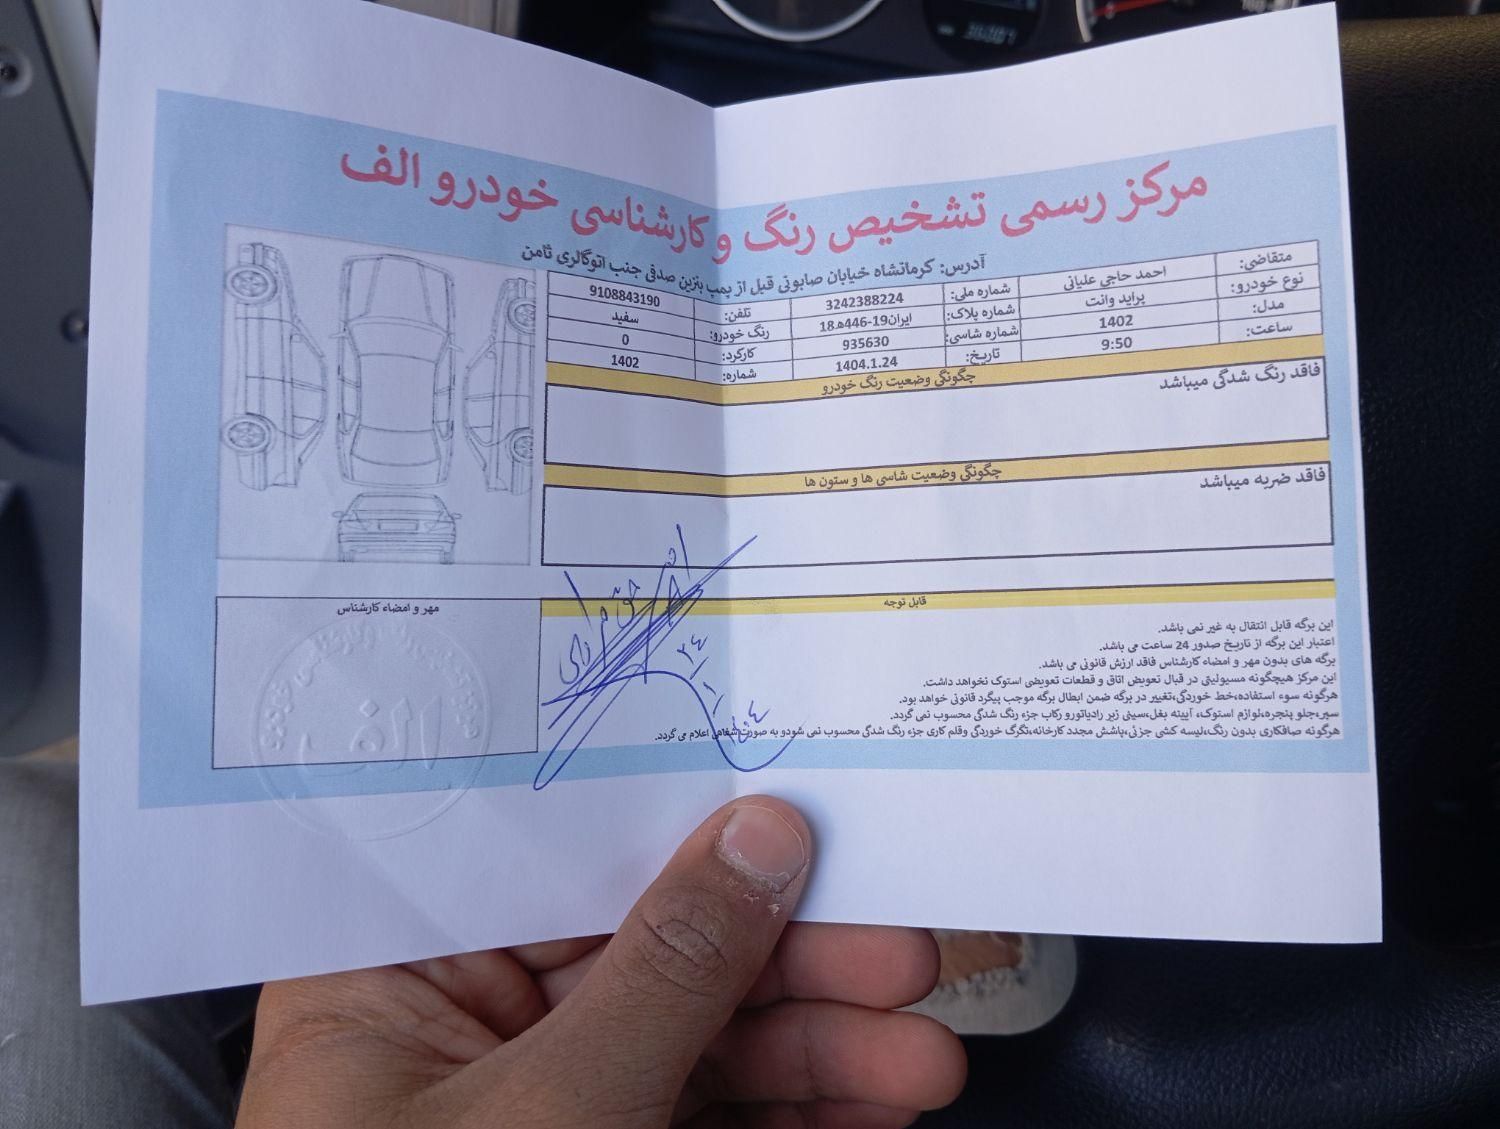 مرکز رسمی تشخیص رنگ و کارشناسی خودرو الف
آدرس: کرمانشاه خیابان صابونی قبل از پمپ بنزین صدقی جنب اتوگالری ثامن
متقاضی: احمد حاجی علیانی شماره ملی: 3242388224 تلفن: 9108843190
نوع خودرو: پراید وانت شماره پلاک: ایران19-446ه18 رنگ خودرو: سفید
مدل: 1402 شماره شاسی: 935630 کارکرد: 0
ساعت: 9:50 تاریخ: 1404.1.24 شماره: 1402
چگونگی وضعیت رنگ خودرو
فاقد رنگ شدگی میباشد
چگونگی وضعیت شاسی ها و ستون ها
فاقد ضربه میباشد
قابل توجه
این برگه قابل انتقال به غیر نمی باشد.
اعتبار این برگه از تاریخ صدور 24 ساعت می باشد.
برگه های بدون مهر و امضاء کارشناس فاقد ارزش قانونی می باشد.
این مرکز هیچگونه مسیولیتی در قبال تعویض اتاق و قطعات تعویضی استوک نخواهد داشت.
هرگونه سوء استفاده،خط خوردگی،تغییر در برگه ضمن ابطال برگه موجب پیگرد قانونی خواهد بود.
سپر،جلو پنجره،لوازم استوک، آیینه بغل،سینی زیر رادیاتورو رکاب جزء رنگ شدگی محسوب نمی گردد.
هرگونه صافکاری بدون رنگ،لیسه کشی جزئی،پاشش مجدد کارخانه،تگرگ خوردگی وقلم کاری جزء رنگ شدگی محسوب نمی شودو به صورت شفاهی اعلام می گردد.
مهر و امضاء کارشناس
الف
۲۴
۱
۱۴۰۴